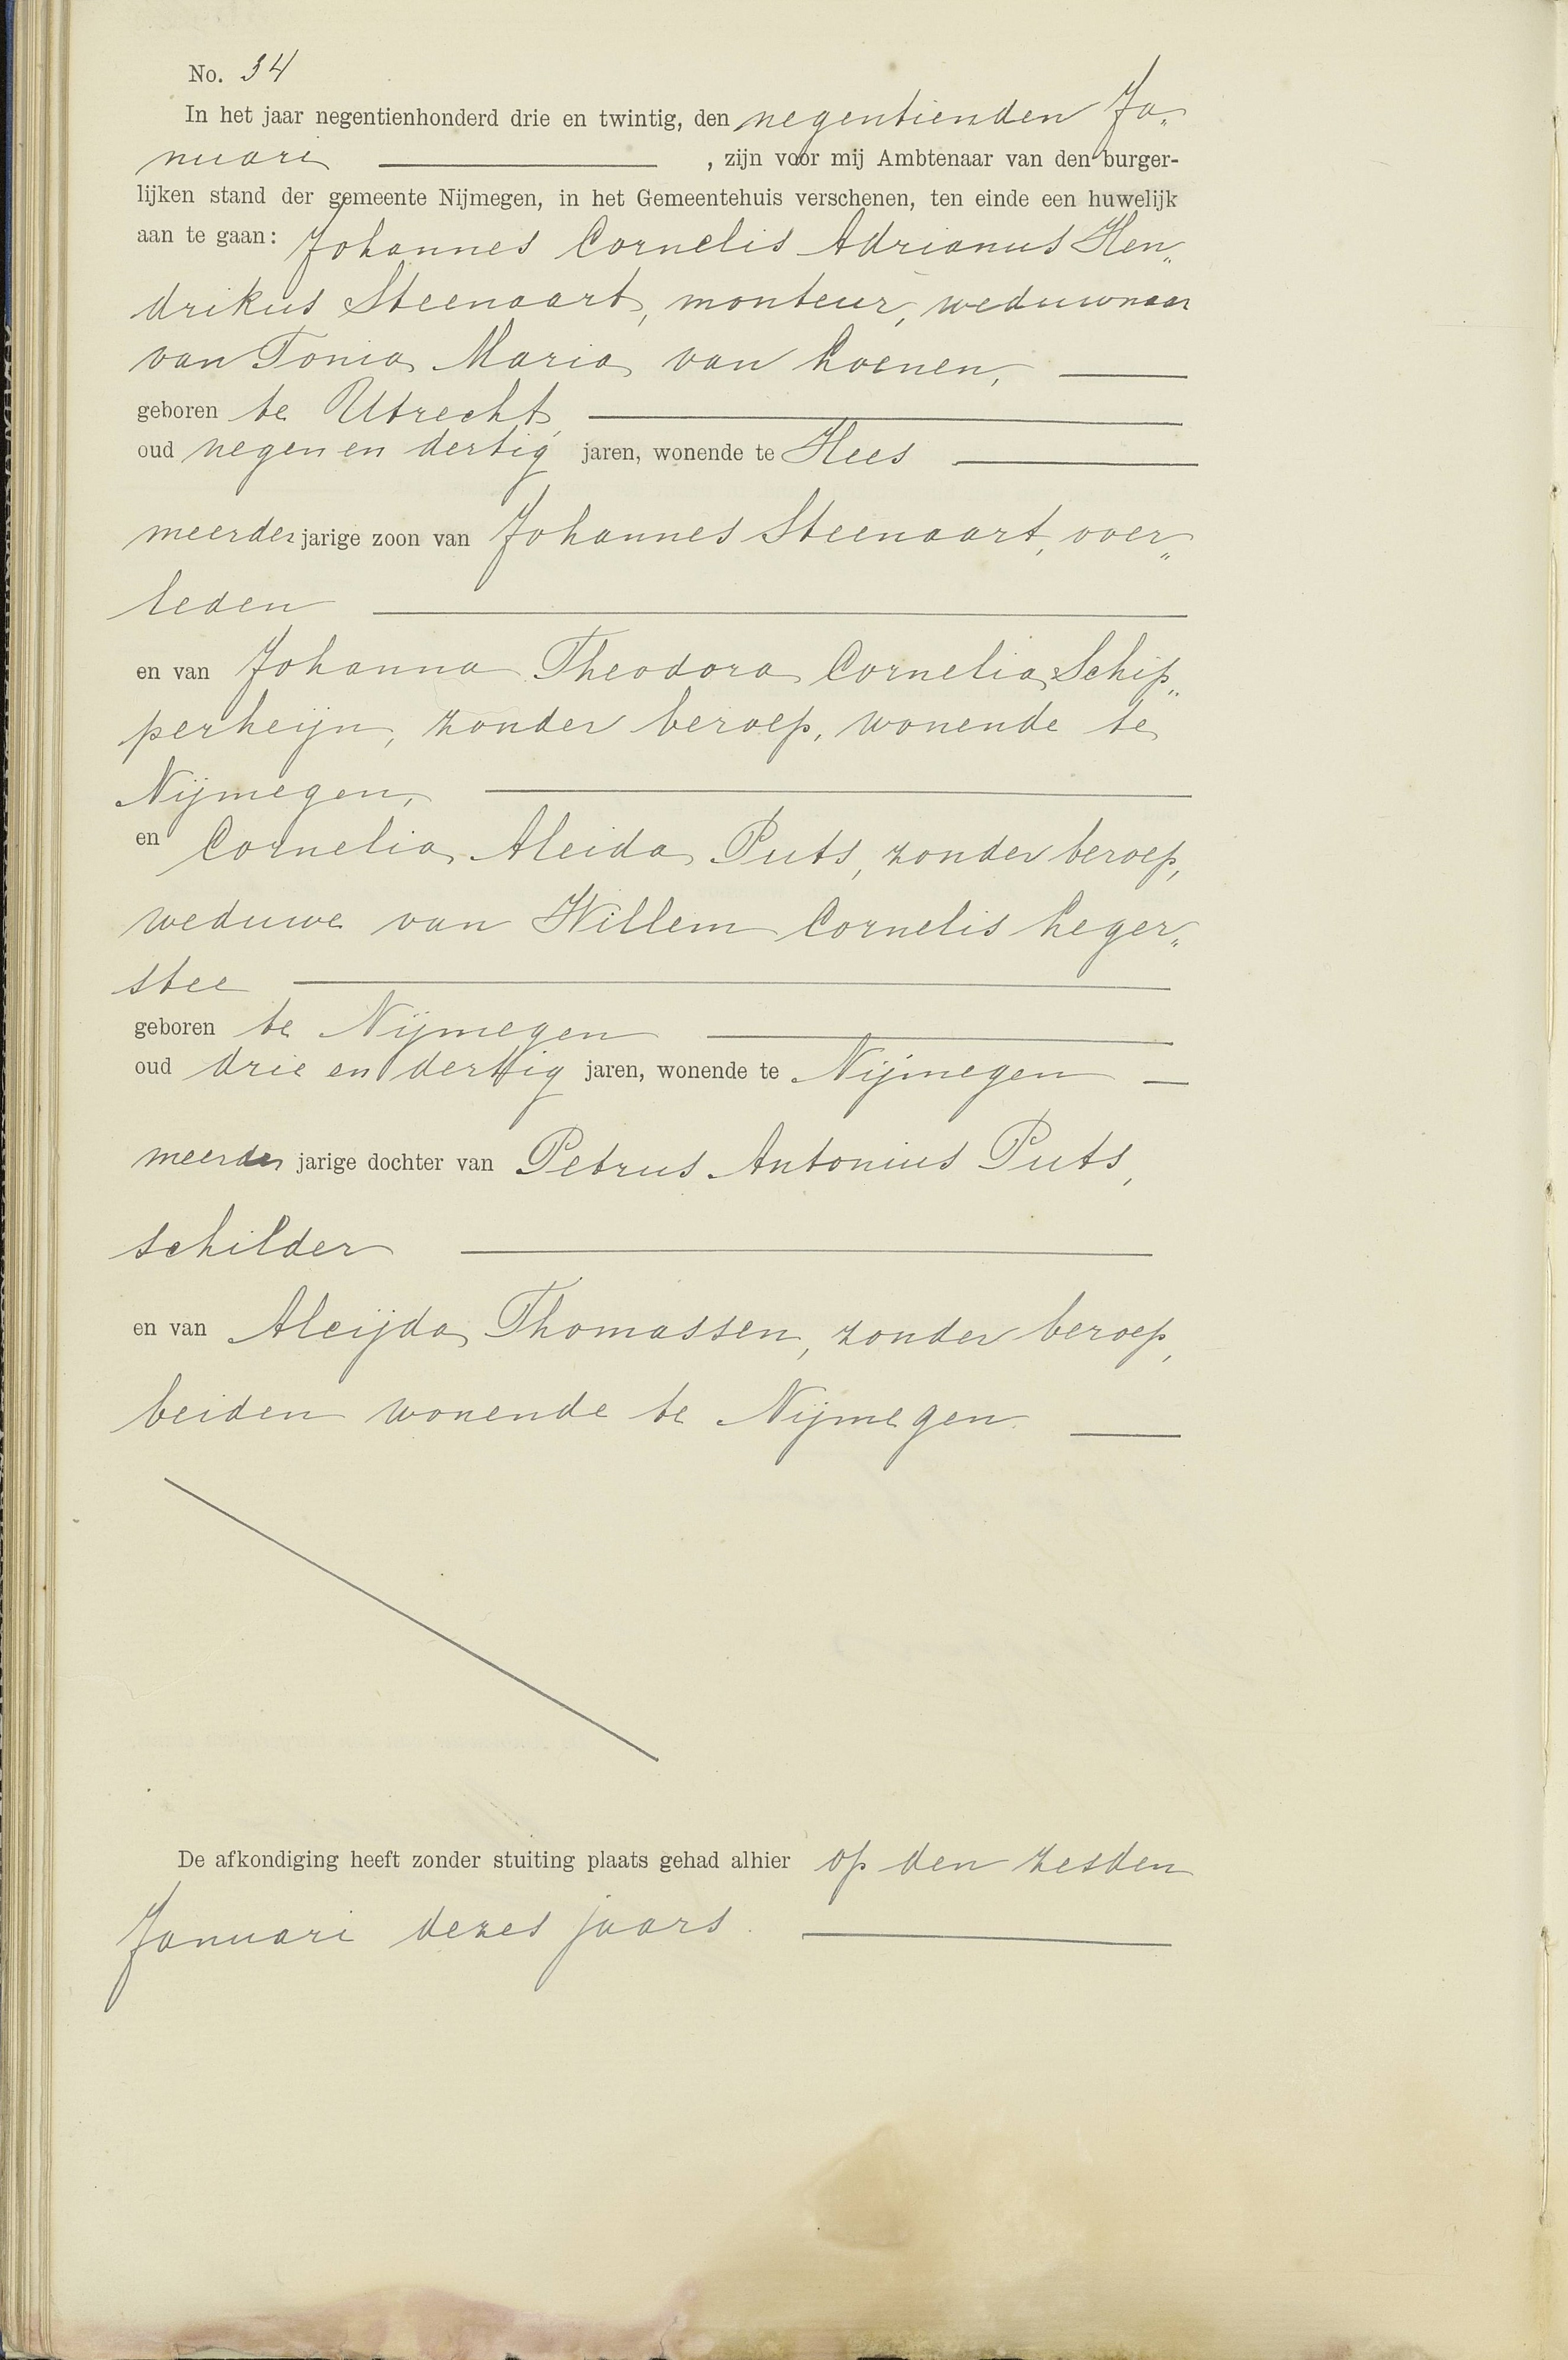 No. 34
In het jaar negentienhonderd drie en twintig, den negentienden Ja„
nuari , zijn voor mij Ambtenaar van den burger-
lijken stand der gemeente Nijmegen, in het Gemeentehuis verschenen, ten einde een huwelijk
aan te gaan: Johannes Cornelis Adrianus Hen„
drikus Steenaart, monteur, weduwnaar
van Tonia Maria van Loenen,
geboren te Utrecht,
oud negen en dertig jaren, wonende te Hees
meerderjarige zoon van Johannes Steenaart, over„
leden
en van Johanna Theodora Cornelia Schip„
perheijn, zonder beroep, wonende te
Nijmegen,
en Cornelia Aleida Puts, zonder beroep,
weduwe van Willem Cornelis Leger„
stee
geboren te Nijmegen
oud drie en dertig jaren, wonende te Nijmegen
meerder jarige dochter van Petrus Antonius Puts,
schilder
en van Aleijda Thomassen, zonder beroep,
beiden wonende te Nijmegen
De afkondiging heeft zonder stuiting plaats gehad alhier op den zesden
Januari dezes jaars.